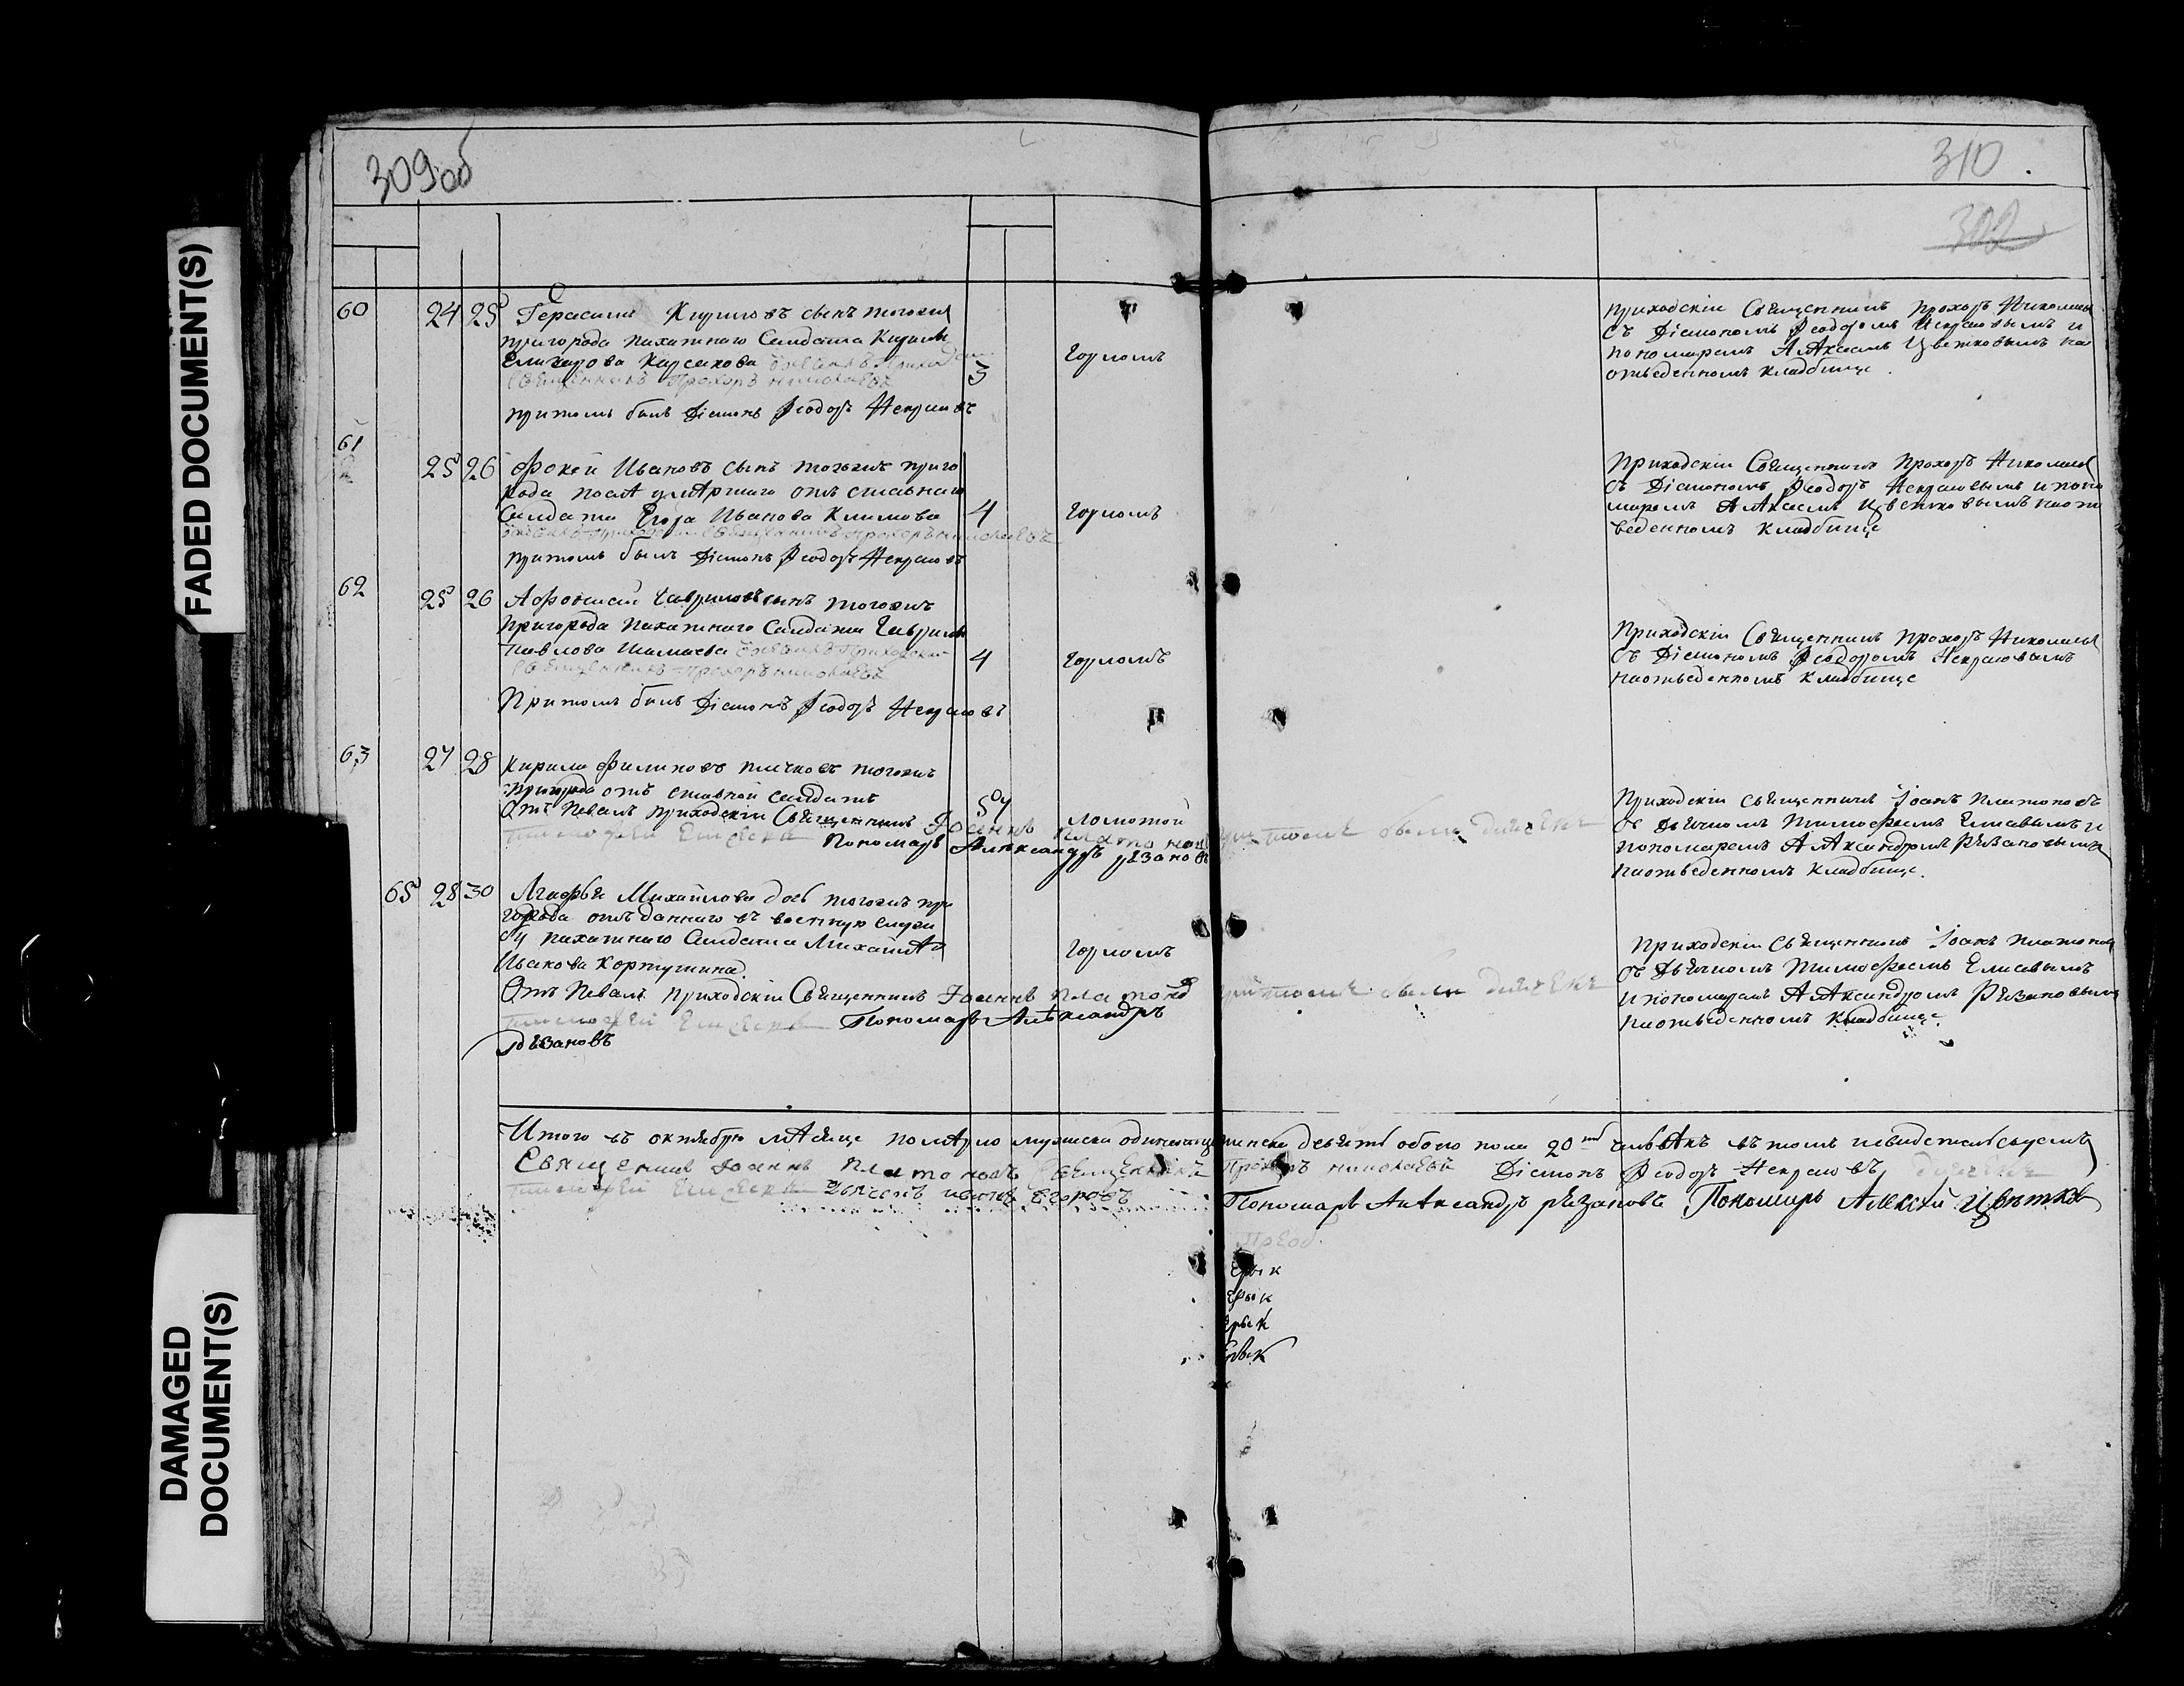 FADED DOCUMENT(S)
DAMAGED
DOCUMENT(S)
309об
310.
302
60 24 25 Герасимъ Кириловъ сынъ тогожъ
пригорода пахатнаго Салдата Кирилы
Елизарова
3 горломъ
притомъ былъ Діаконъ Ѳеодоръ Некрасовъ
приходскій Священникъ Прохоръ Николаевъ
съ Діакономъ Ѳеодоромъ Некрасовымъ и
пономаремъ Алѣксеемъ Цветковымъ на
отведенномъ кладбище.
61 25 26 Фокей Ивановъ сынъ тогожъ приго
рода послѣ умѣршаго отъ ставнаго
Салдата Егора Иванова Климова
4 горломъ
священникъ прохоръ николаевъ
притомъ былъ Діаконъ Ѳеодоръ Некрасовъ
Приходскій Священникъ Прохоръ Николаевъ
съ Діакономъ Ѳеодоръ Некрасовымъ и поно
маремъ Алѣксеемъ Цветковымъ на от
веденномъ кладбище
62 25 26 Афонасей Гавриловъ сынъ тогожъ
пригорода пахатнаго Салдата Гаврилы
Павлова
4 горломъ
священникъ прохоръ николаевъ
Притомъ былъ Діаконъ Ѳеодоръ Некрасовъ
Приходскій Священникъ Прохоръ Николаевъ
съ Діакономъ Ѳеодоромъ Некрасовымъ
на отведенномъ кладбище
63 27 28 Кирила Филиповъ тогожъ
пригорода отъ ставной салдатъ
54 ломотой
Отъ Певалъ приходскій Священникъ Іоаннъ Платоновъ притомъ были дьячекъ
тимофей Елисеевъ Пономарь Алѣксандръ рѣзановъ
Приходскій священникъ Іоанъ Платоновъ
съ Дьячкомъ Тимофеемъ Елисевымъ и
пономаремъ Алѣксандромъ Рѣзановымъ
на отведенномъ кладбище.
65 28 30 Агафья Михайлова дочь тогожъ при
города отъ даннаго въ военную служ
бу пахатнаго Салдата Михайлы
Иванова Кортушина.
горломъ
Отъ Певалъ приходскій Священникъ Іоаннъ Платоновъ притомъ были дьячекъ
тимофей Елисеевъ Пономарь Алѣксандръ
рѣзановъ
Приходскій священникъ Іоанъ Платоновъ
съ Дьячкомъ Тимофеемъ Елисевымъ
и пономаремъ Алѣксандромъ Рѣзановымъ
на отведенномъ кладбище.
Итого въ октябрѣ мѣсяце померло мужска одинатцать женска девять обоего пола 20ть человѣкъ въ томъ и свидетельствуемъ
Священникъ Іоаннъ Платоновъ священникъ Прохоръ николаевъ Діаконъ Ѳеодоръ Некрасовъ, дьячекъ
тимофей Елисеевъ дьячекъ иванъ Егоровъ Пономарь Алѣксандръ рѣзановъ Пономарь Алексѣй Цвѣтковъ